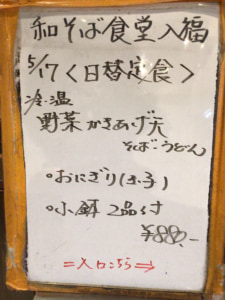 和そば食堂入福
5/17〈日替定食〉
冷・温
野菜かきあげ天
そば・うどん
○おにぎり(玉子)
○小鉢2品付
¥880.-
=入口こちら⇒